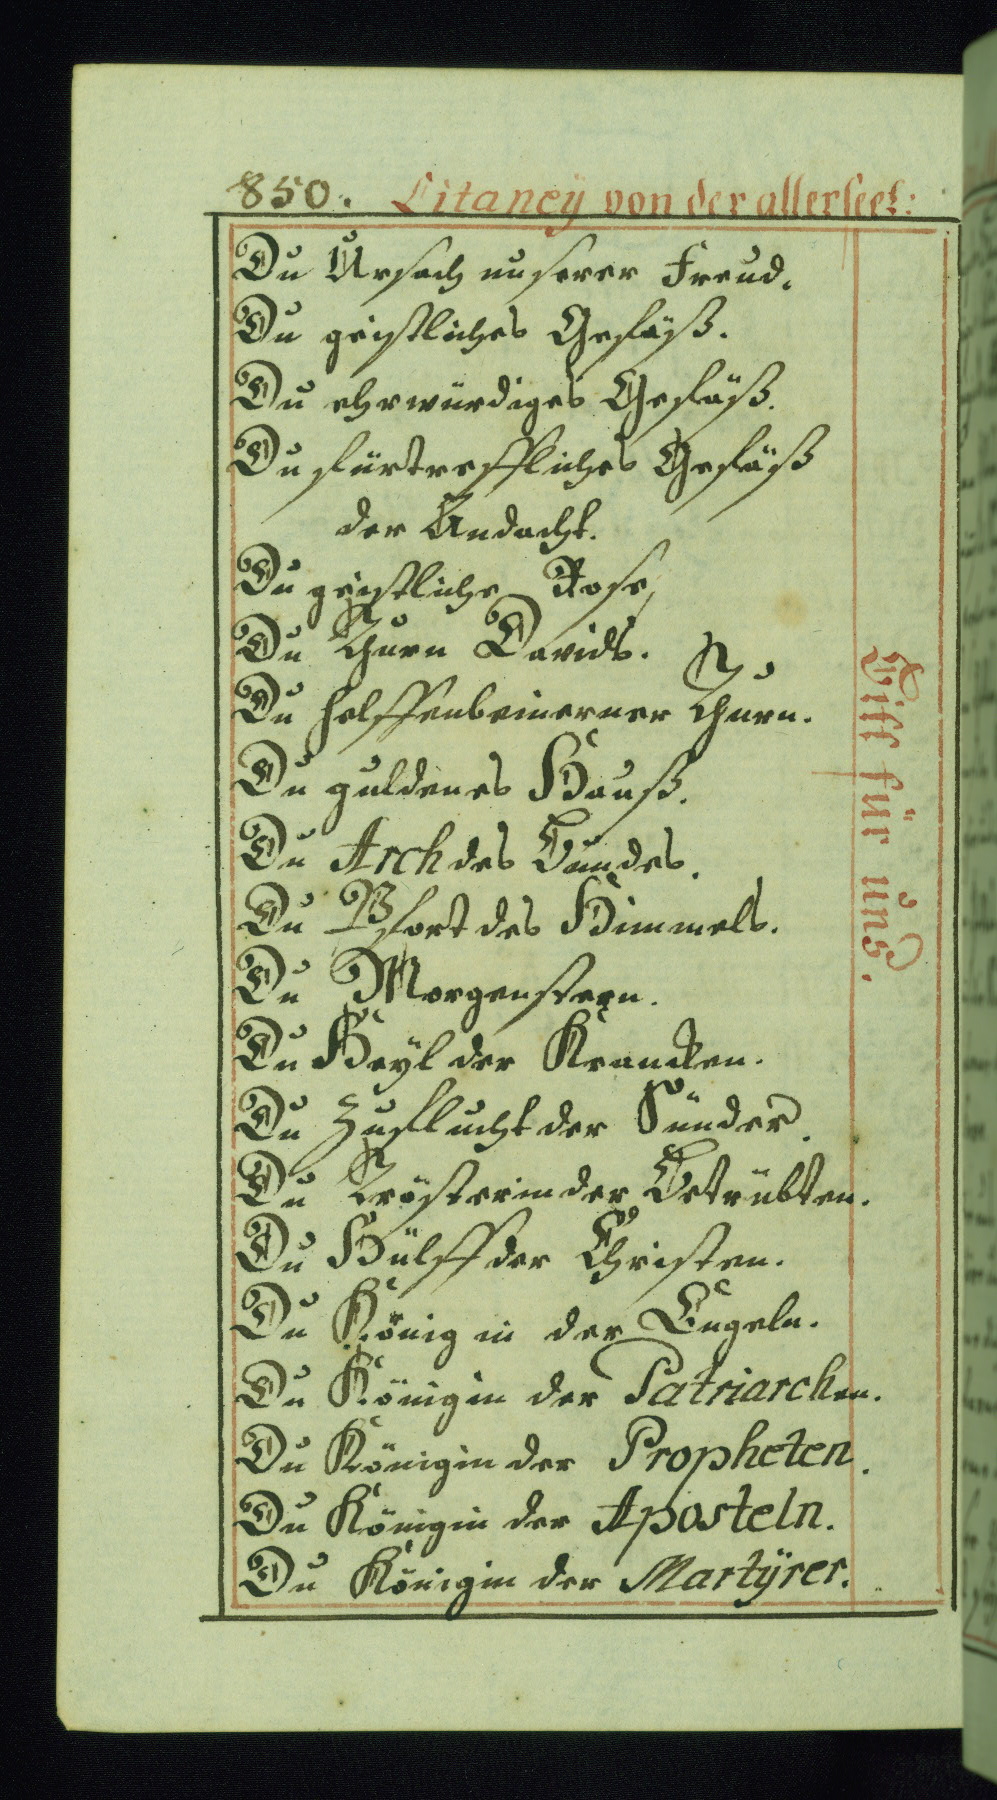 850. Litaneÿ von der allerseel:
Du Ursach unserer Freud.
Du geistliches Gefäß.
Du ehrwürdiges Gefäß.
Du fürtreffliches Gefäß
der Andacht.
Du geistliche Rose,
Du Thurn Davids.
Du helffenbeinerner Thurn.
Du guldenes Hauß.
Du Arch des Bundes.
Du Pfort des Himmels.
Du Morgenstern.
Du Heÿl der Krancken.
Du Zuflucht der Sünder.
Du Trösterin der Betrübten.
Du Hülff der Christen.
Du König in der Engeln.
Du Königin der Patriarchen.
Du Königin der Propheten.
Du Königin der Aposteln.
Du Königin der Martÿrer.
Bitt für uns.